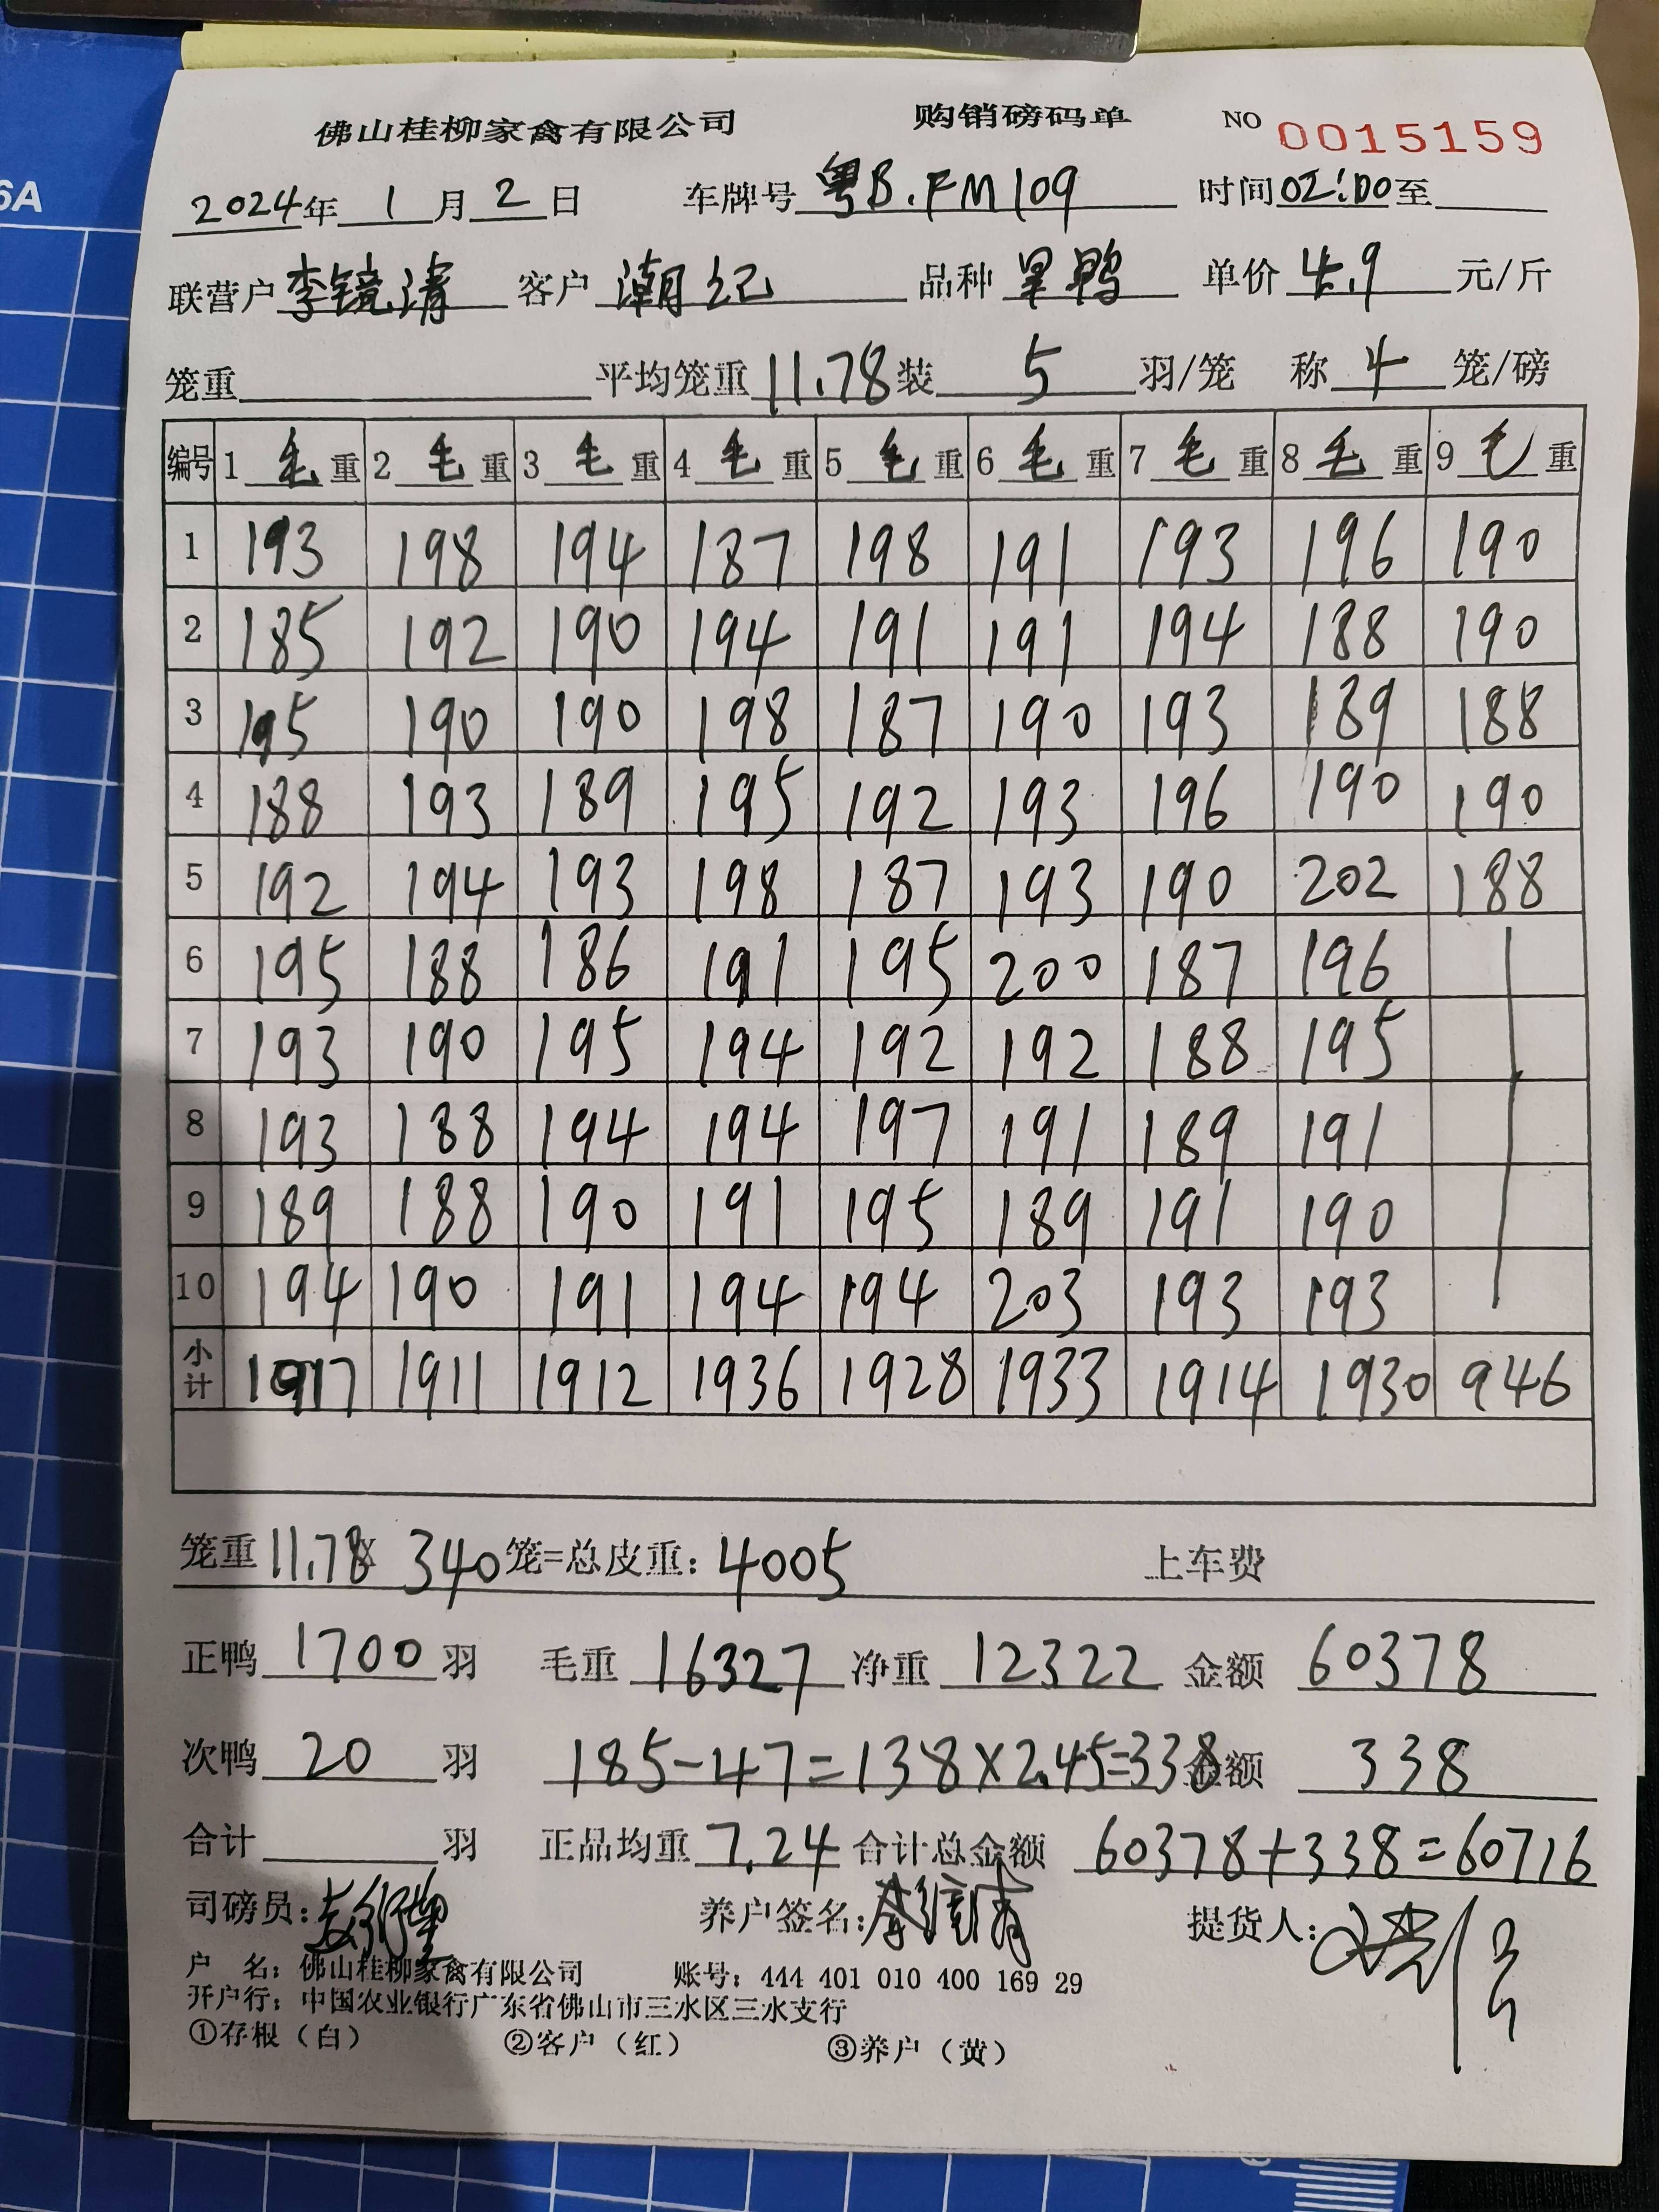 6A
佛山桂柳家禽有限公司 购销磅码单 NO 0015159
2024年 1 月 2 日 车牌号 粤B.FM109 时间 02:00 至
联营户 李镜清 客户 潮记 品种 旱鸭 单价 4.9 元/斤
笼重 平均笼重 11.78 装 5 羽/笼 称 4 笼/磅
编号 1 毛 重 2 毛 重 3 毛 重 4 毛 重 5 毛 重 6 毛 重 7 毛 重 8 毛 重 9 毛 重
1 193 198 194 187 198 191 193 196 190
2 185 192 190 194 191 191 194 188 190
3 195 190 190 198 187 190 193 189 188
4 188 193 189 195 192 193 196 190 190
5 192 194 193 198 187 193 190 202 188
6 195 188 186 191 195 200 187 196
7 193 190 195 194 192 192 188 195
8 193 188 194 194 197 191 189 191
9 189 188 190 191 195 189 191 190
10 194 190 191 194 194 203 193 193
小计 1917 1911 1912 1936 1928 1933 1914 1930 946
笼重 11.78 × 340 笼=总皮重: 4005 上车费
正鸭 1700 羽 毛重 16327 净重 12322 金额 60378
次鸭 20 羽 185-47=138×2.45=338 金额 338
合计 羽 正品均重 7.24 合计总金额 60378+338=60716
司磅员: 养户签名: 提货人:
户 名: 佛山桂柳家禽有限公司 账号: 444 401 010 400 169 29
开户行: 中国农业银行广东省佛山市三水区三水支行
①存根（白） ②客户（红） ③养户（黄）